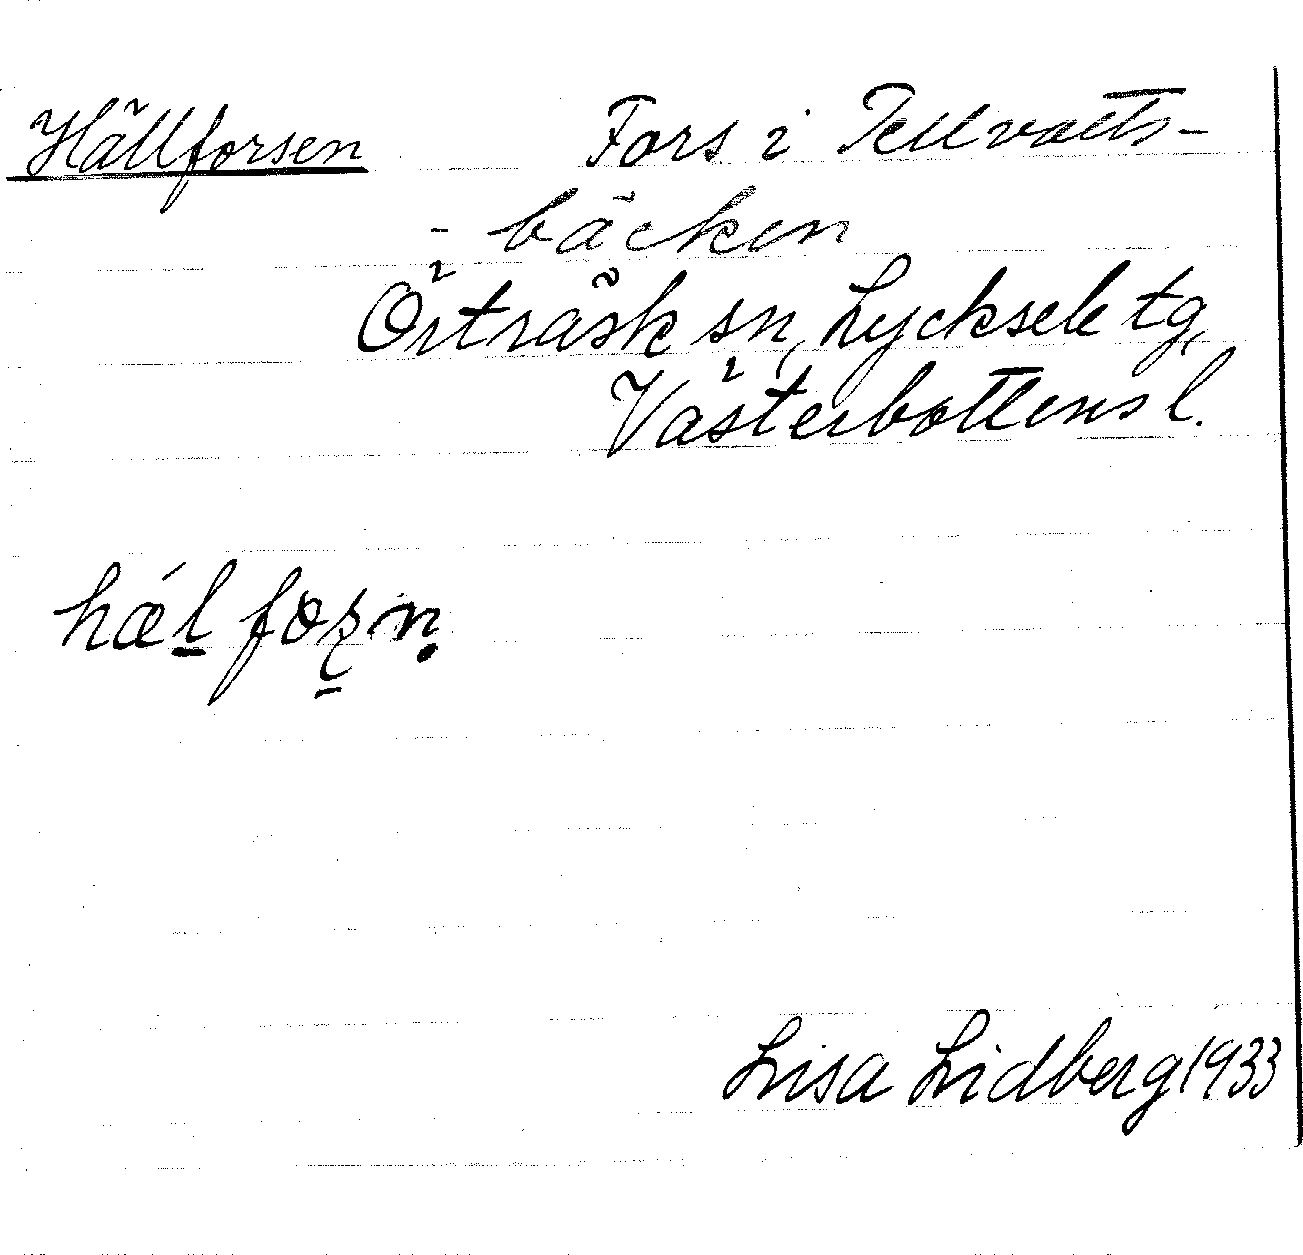 Hällforsen Fors i Tellvatts-
- bäcken
Örträsk sn, Lycksele tg,
Västerbottens l.
hæ´l forsn̥
Lisa Lidberg 1933